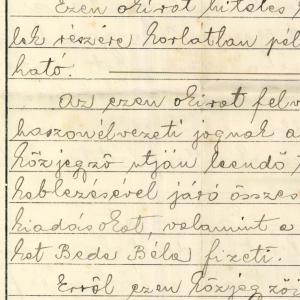 Ezen okirat hiteles
lek részére korlatlan pél
ható.
Az ezen okirat felv
haszonélvezeti jognak a
közjegző utján leendő
keblezésével járó összes
kiadásokat, valamint a
ket Bede Béla fizeti.
Erről ezen közjegzői